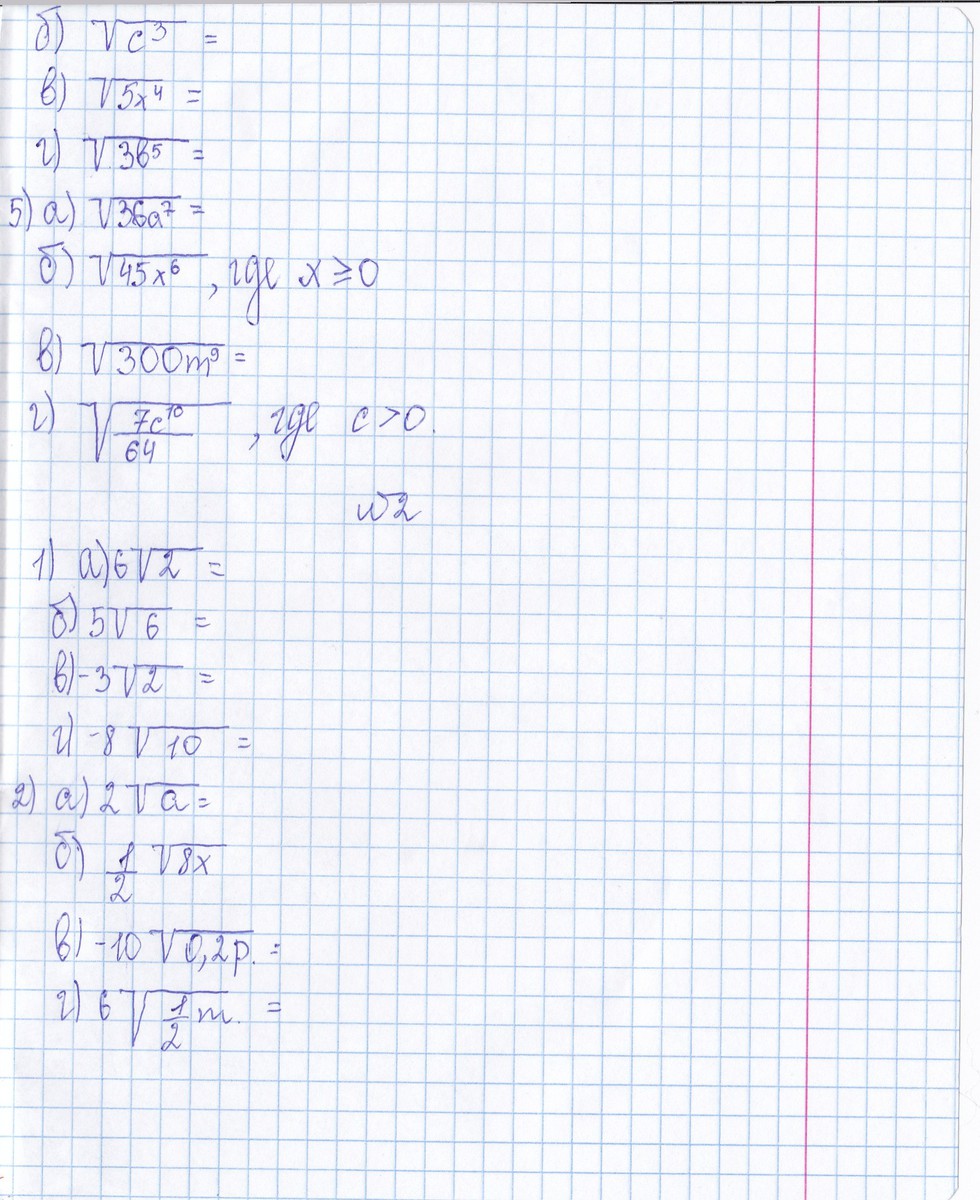 б) √c³ =
в) √5x⁴ =
г) √3b⁵ =
5) а) √36a⁷ =
б) √45x⁶ , где x ≥ 0
в) √300m⁹ =
г) √(7c¹⁰/64) , где c > 0.
№2
1) а) 6√2 =
б) 5√6 =
в) -3√2 =
г) -8√10 =
2) а) 2√a =
б) 1/2 √8x
в) -10 √0,2p. =
г) 6 √(1/2 m. =